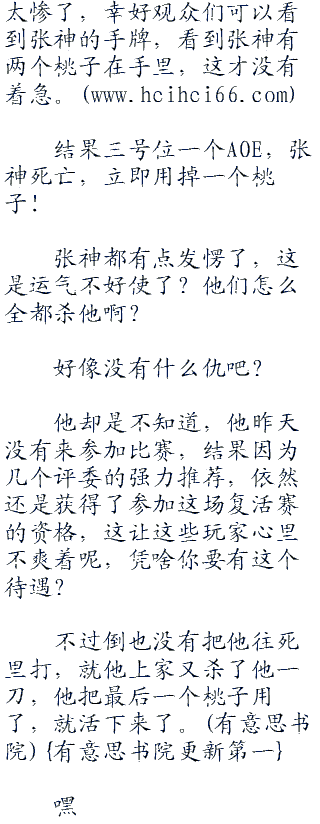 太惨了，幸好观众们可以看
到张神的手牌，看到张神有
两个桃子在手里，这才没有
着急。(www.hcihci66.com)
结果三号位一个AOE，张
神死亡，立即用掉一个桃
子！
张神都有点发愣了，这
是运气不好使了？他们怎么
全都杀他啊？
好像没有什么仇吧？
他却是不知道，他昨天
没有来参加比赛，结果因为
几个评委的强力推荐，依然
还是获得了参加这场复活赛
的资格，这让这些玩家心里
不爽着呢，凭啥你要有这个
待遇？
不过倒也没有把他往死
里打，就他上家又杀了他一
刀，他把最后一个桃子用
了，就活下来了。(有意思书
院){有意思书院更新第一}
嘿